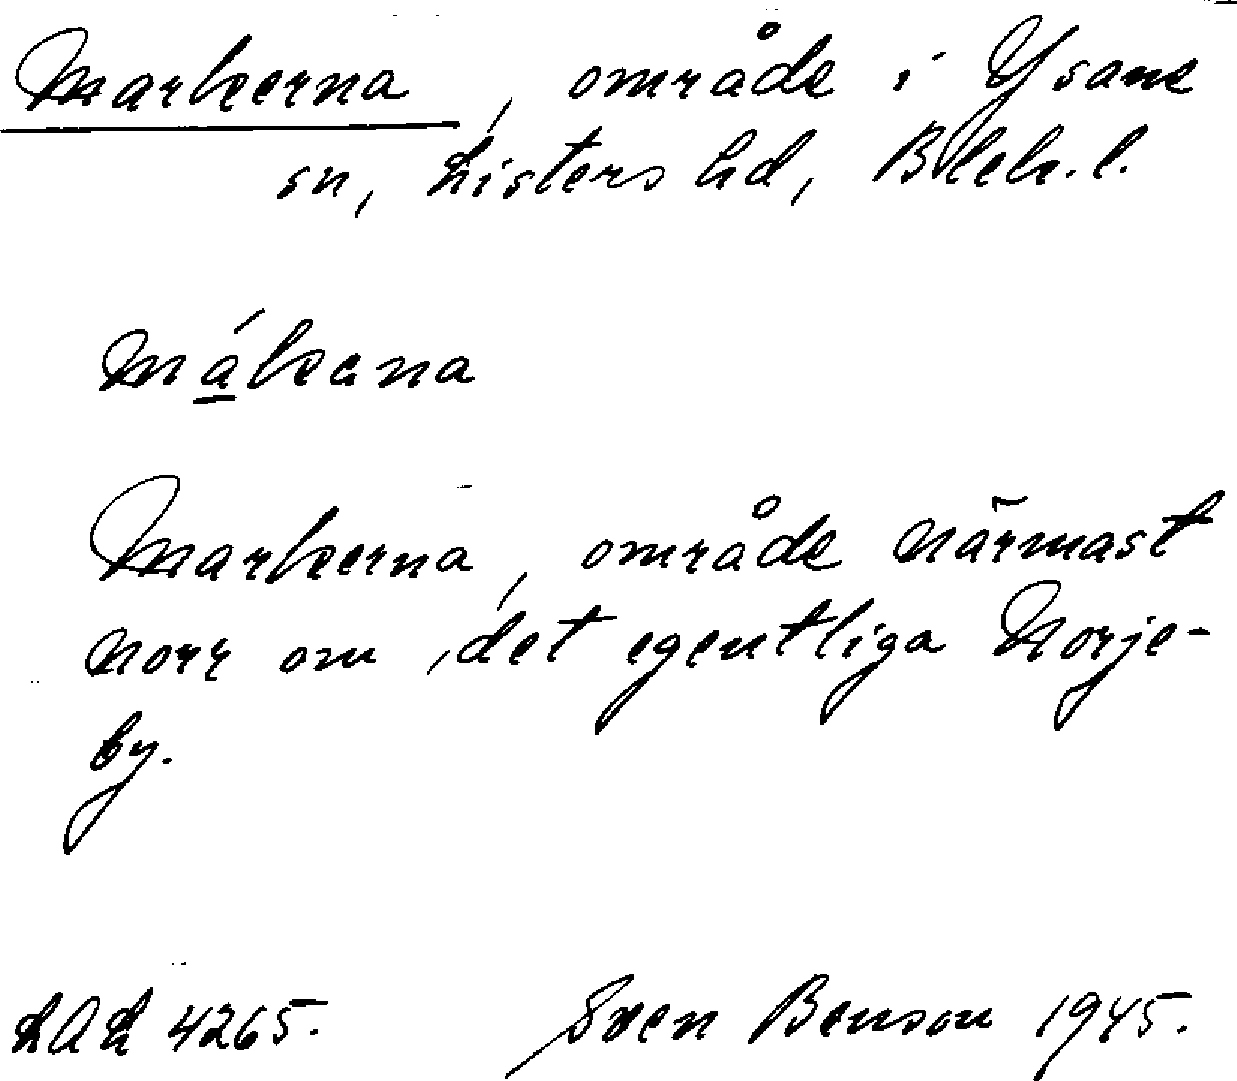 Markerna, område i Ysane
sn, Listers hd, Blek. l.
mákana
Markerna, område närmast
norr om det egentliga Norje-
by.
LAL 4265. Sven Benson 1945.